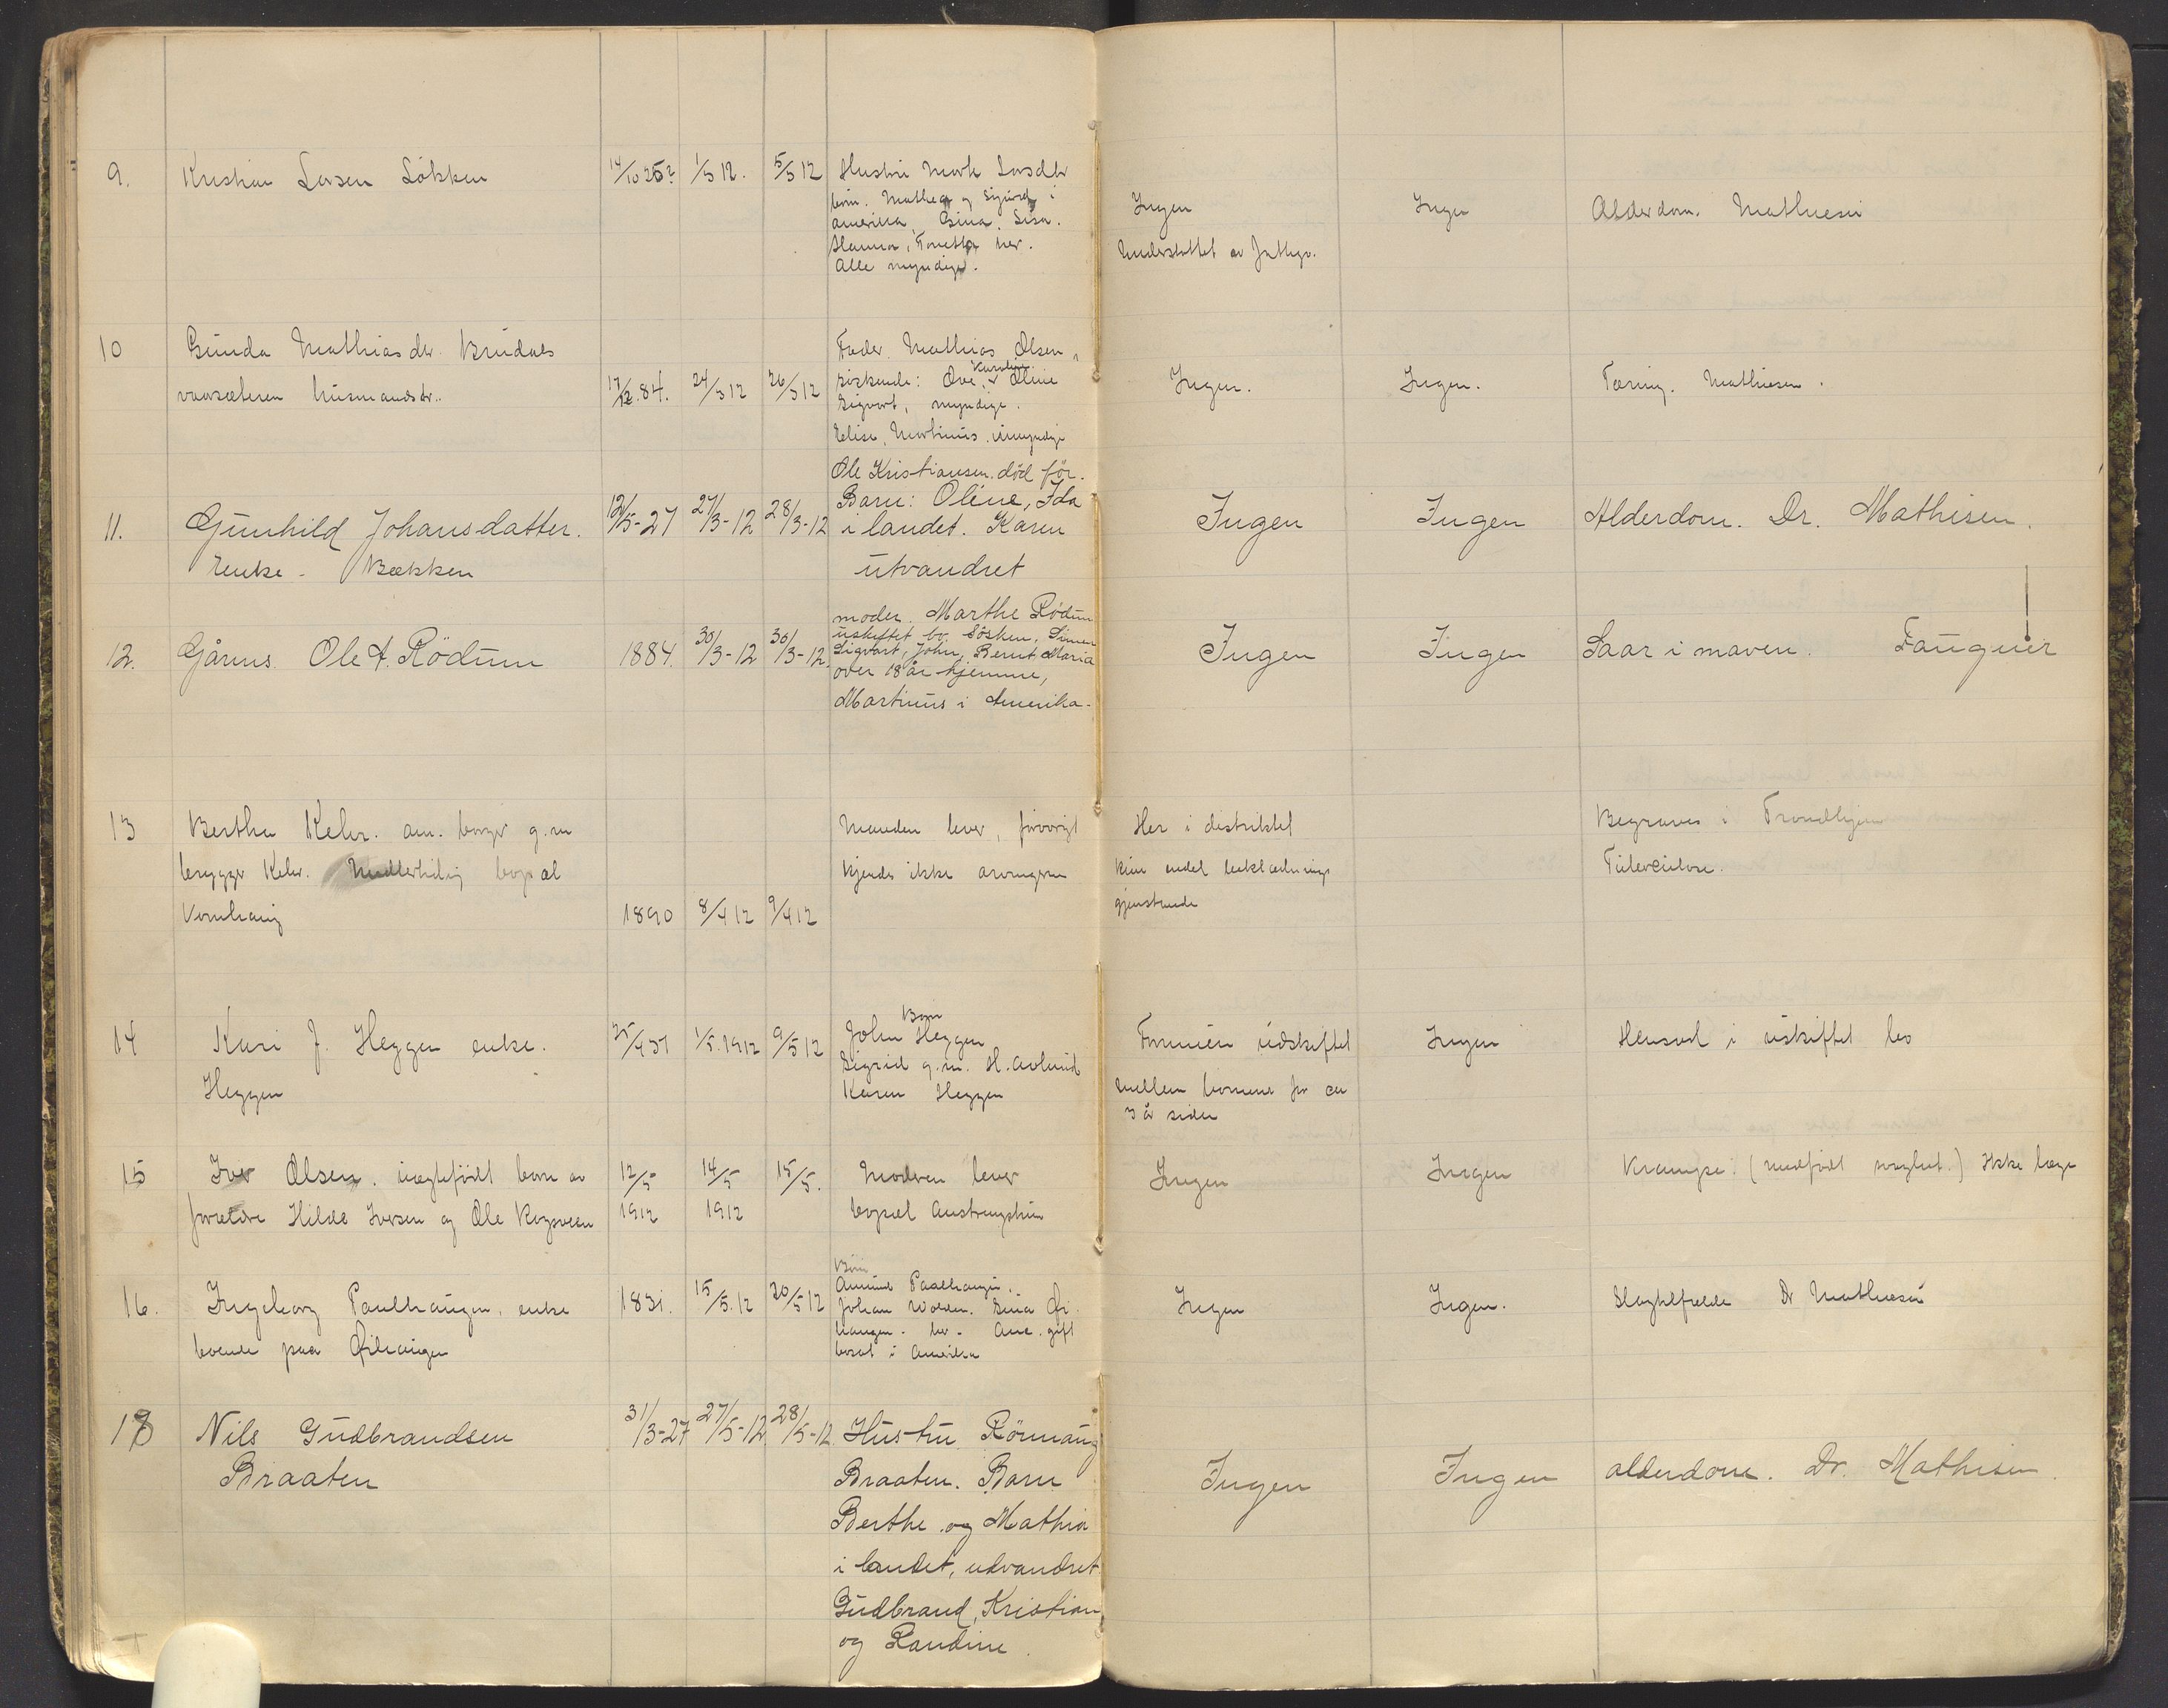 9.
Kristian Larsen Løkken
14/10 25?
1/3 12.
5/3 12
Hustru Marte Larsdtr
børn. Mathea og Sigurd i
amerika, Gina. Lisa.
Hanna, Tonetta her.
Alle myndige.
Ingen
Understøttet av Fattigv.
Ingen
Alderdom. Mathiesen
10
Gunda Mathiasdtr. Brudals
vaarsæteren husmandsdr..
17/12.84.
24/3 12
26/3 12
Fader. Mathias Olsen,
Karoline
søskende: Ove, Oline
Sigvart, myndige.
Elise, Martinus. umyndige
Ingen.
Ingen.
Tæring. Mathiesen.
11.
Gunhild Johansdatter.
Enke - Bækken
12/5-27
27/3-12
28/3-12
Ole Kristiansen. död för.
Barn: Oline, Ida
i landet. Karen
utvandret
Ingen
Ingen
Alderdom. Dr. Mathisen.
12.
Gårms. Ole A. Rödum
1884.
30/3-12
30/3-12.
moder. Marthe Rødum
uskiftet bo. Søsken, Simen
Sigvart, John, Bernt Maria
over 18 år hjemme,
Martinus i Amerika.
Ingen
Ingen
Saar i maven. Faugner
13
Bertha Kehr. am. borger g.m
brygger Kehr. Midlertidig bopæl
Vornhaug
1890
8/4 12
9/4 12
Manden lever, forøvrigt
kjendes ikke arvingerne
Her i distriktet
kun endel beklædnings
gjenstande
Begraves i Trondhjem
Tuberculose.
14
Kari J. Heggen enke.
Heggen
25/4 31
1/5.1912
9/5 12
Børn
John Heggen
Sigrid g.m. H. Avlund
Karen Heggen
Formuen udskiftet
mellem børnene for ca
3 år siden
Ingen
Hensad i uskiftet bo
15
Iver Olsen. uægtefödt barn av
forældre Hilda Iversen og Ole Rogsveen
12/5
1912
14/5
1912
15/5.
Moderen lever
bopæl Austrunghim
Ingen
Ingen
Krampe. (medfödt svaghet.) Ikke læge
16.
Ingeborg Paulhaugen, enke
boende paa Øihaugen
1831.
15/5.12
20/5 12
Børn
Amund Paulhaugen.
Johan Wolden. Gina Øi
haugen. her. Ane. gift
bosat i Amerika
Ingen
Ingen.
Slagtilfælde Dr Mathiesen
17
Nils Gudbrandsen
Braaten
31/3-27
27/5-12
28/5-12
Hustru Rönnaug
Braaten. Barn
Berthe og Mathia
i landet, udvandret
Gudbrand, Kristian
og Randine.
Ingen
Ingen
alderdom. Dr. Mathisen.